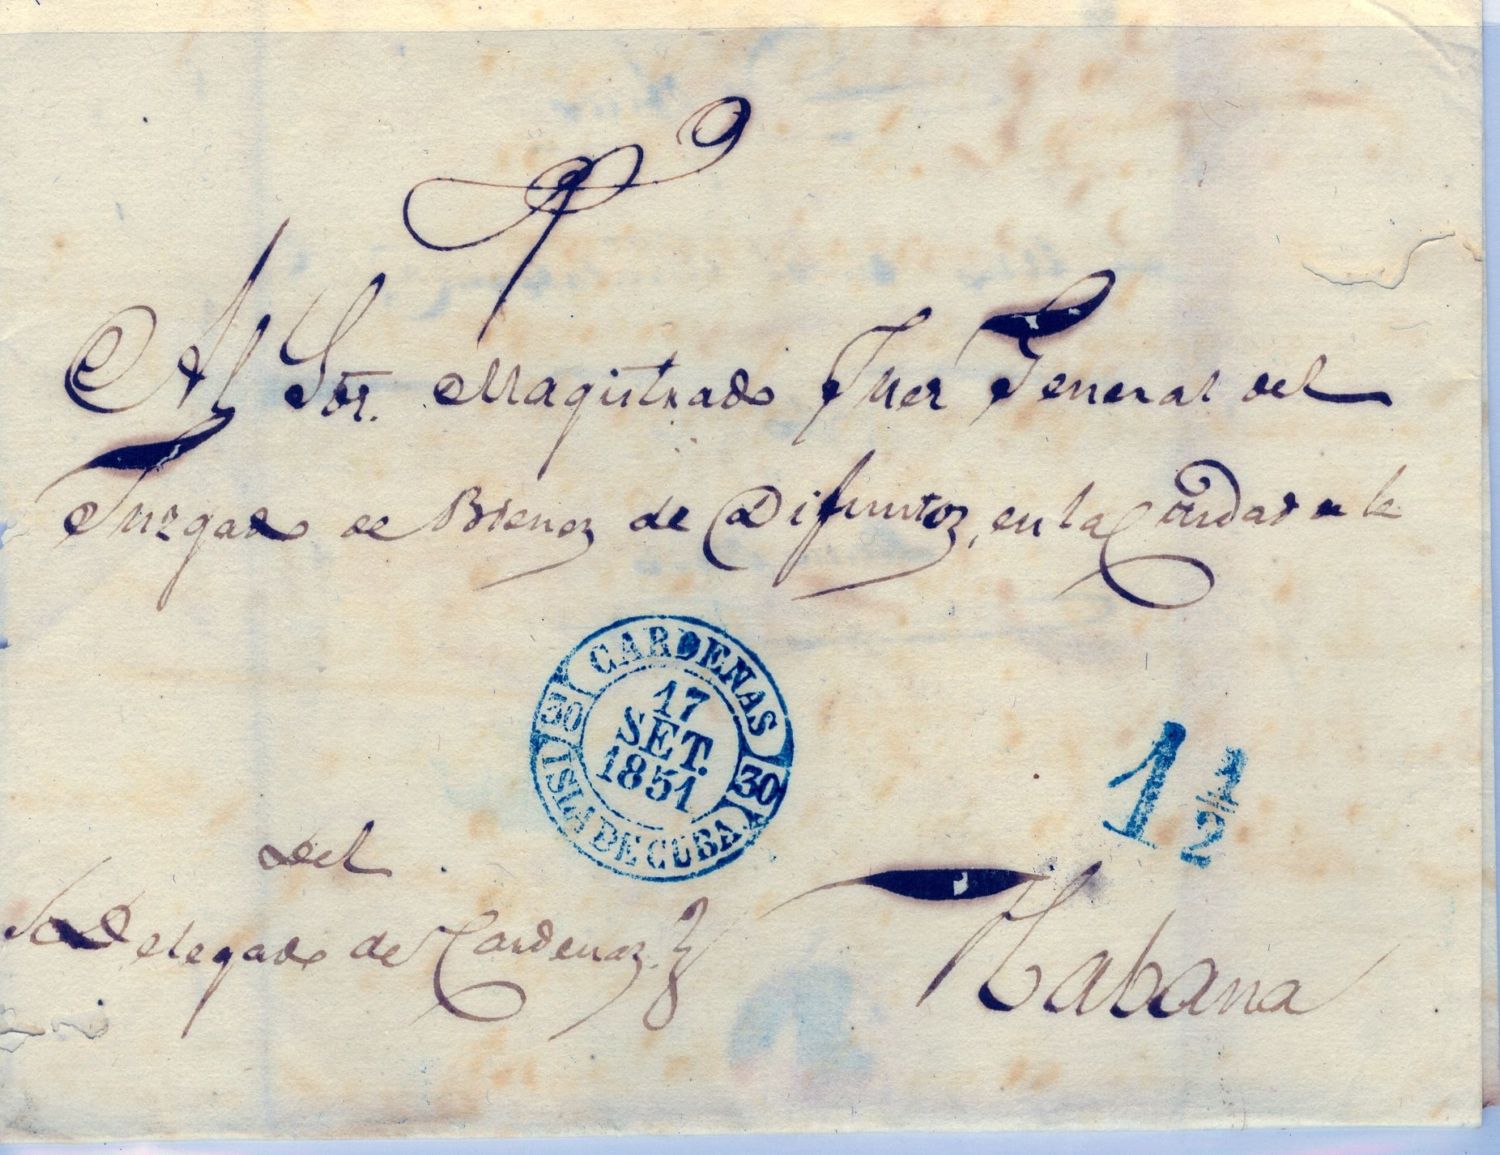 Al Sōr. Magistrado Juez General del
Juzgado de Bienes de Difuntos, en la Ciudad de la
CARDENAS
30
17
SET.
1851
30
ISLA DE CUBA
1 1/2
Del
Delegado de Cardenas.
Habana